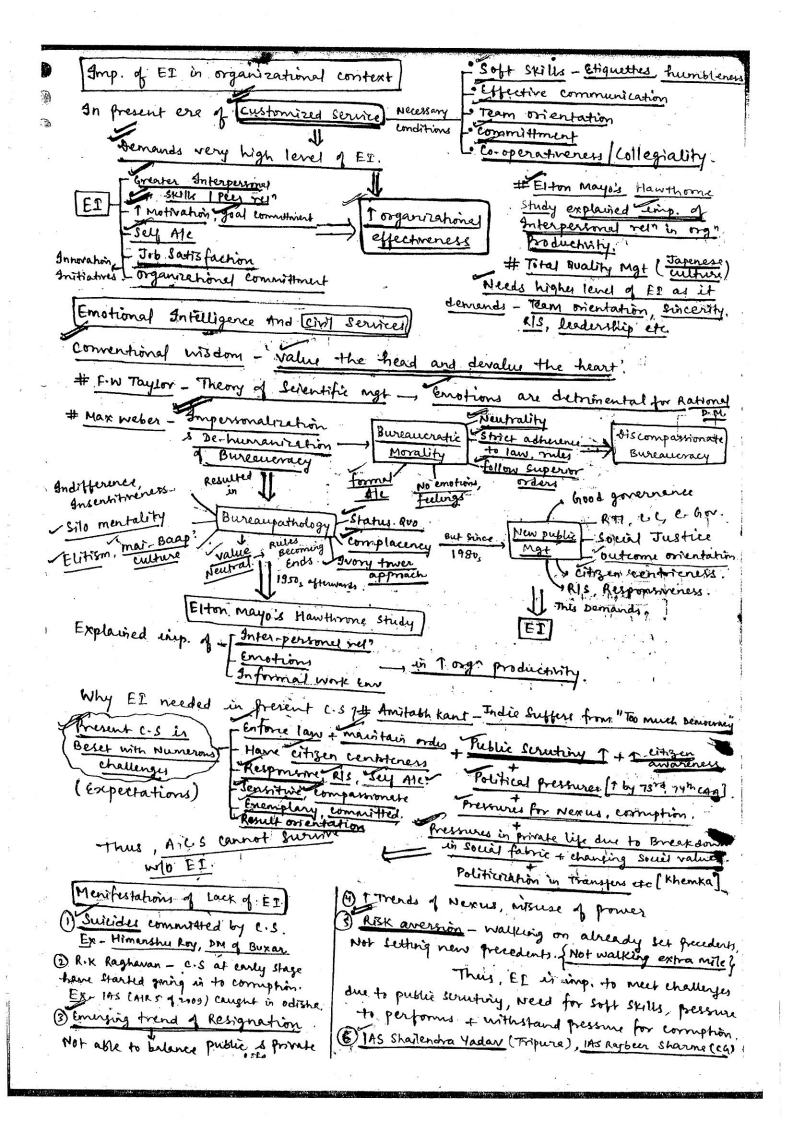 Imp. of EI in organizational context
In present era of Customized Service
Necessary conditions
• Soft Skills - Etiquettes, humbleness
• Effective communication
• Team orientation
• Committment
• Co-operativeness / Collegiality.
Demands very high level of EI.
EI
Greater Interpersonal
Skills / Peer relⁿ
↑ Motivation, Goal committment
Self A/c
Job Satisfaction
Organizational committment
Innovation,
Initiatives
↑ organizational
effectiveness
# Elton Mayo's Hawthorne
Study explained imp. of
Interpersonal relⁿ in orgⁿ
Productivity.
# Total Quality Mgt (Japenese
culture)
Needs higher level of EI as it
demands - Team orientation, Sincerity,
R/S, leadership etc
Emotional Intelligence And Civil Services
Conventional wisdom - 'value the head and devalue the heart'.
# F.W Taylor - Theory of Scientific mgt → Emotions are detrimental for Rational
D.M.
# Max Weber - Impersonalization
& De-humanization
of Bureaucracy
Bureaucratic
Morality
Neutrality
Strict adherence
to law, rules
follow superior
orders
formal
A/c
No emotions,
feelings
Discompassionate
Bureaucracy
Resulted
in
Indifference,
Insensitiveness
Silo mentality
Elitism, 'mai-Baap'
culture
Bureaupathology
value
Neutral
Rules
Becoming
Ends.
Status-Quo
Complacency
Ivory tower
approach
1950s afterwards
But since
1980s
New public
Mgt
Good governance
RTI, C.C, e-Gov.
Social Justice
Outcome orientation
Citizen centricness.
R/S, Responsiveness.
This Demands,
EI
Elton Mayo's Hawthrone Study
Explained imp. of
Inter-personel relⁿ
Emotions
Informal work Env
→ in ↑ orgⁿ productivity.
Why EI needed in present C.S ? # Amitabh Kant - India Suffers from "Too Much Democracy"
Present C.S is
Beset with Numerous
challenges
(Expectations)
Enforce law + maintain order
Have citizen centricness
Responsive, R/S, "Self A/c"
Sensitive, compassionate
Exemplary, committed.
Result orientation
+ Public Scrutiny ↑ + ↑ citizen
awareness
+
Political pressures [↑ by 73rd, 74th CAA]
+
Pressures for Nexus, corruption.
+
Pressures in private life due to Breakdown
in Social fabric + changing Social values.
+
Politicization in Transfers etc [Khemka]
Thus, A.C.S cannot survive
w/o EI.
Menifestations of Lack of EI.
① Suicides committed by C.S.
Ex - Himanshu Roy, DM of Buxar
② R.K Raghavan - C.S at early stage
have started going in to corruption.
Ex - IAS (AIR 5 of 2009) caught in odisha.
③ Emerging trend of Resignation
Not able to balance public & private
④ ↑ Trends of Nexus, misuse of power
⑤ Risk aversion - walking on already set precedents,
Not setting new precedents. {Not walking extra mile}
Thus, EI is imp. to meet challenges
due to public scrutiny, need for soft skills, pressure
to performs + withstand pressure for corruption.
⑥ IAS Shailendra Yadav (Tripura), IAS Rajbeer Sharma (CG)